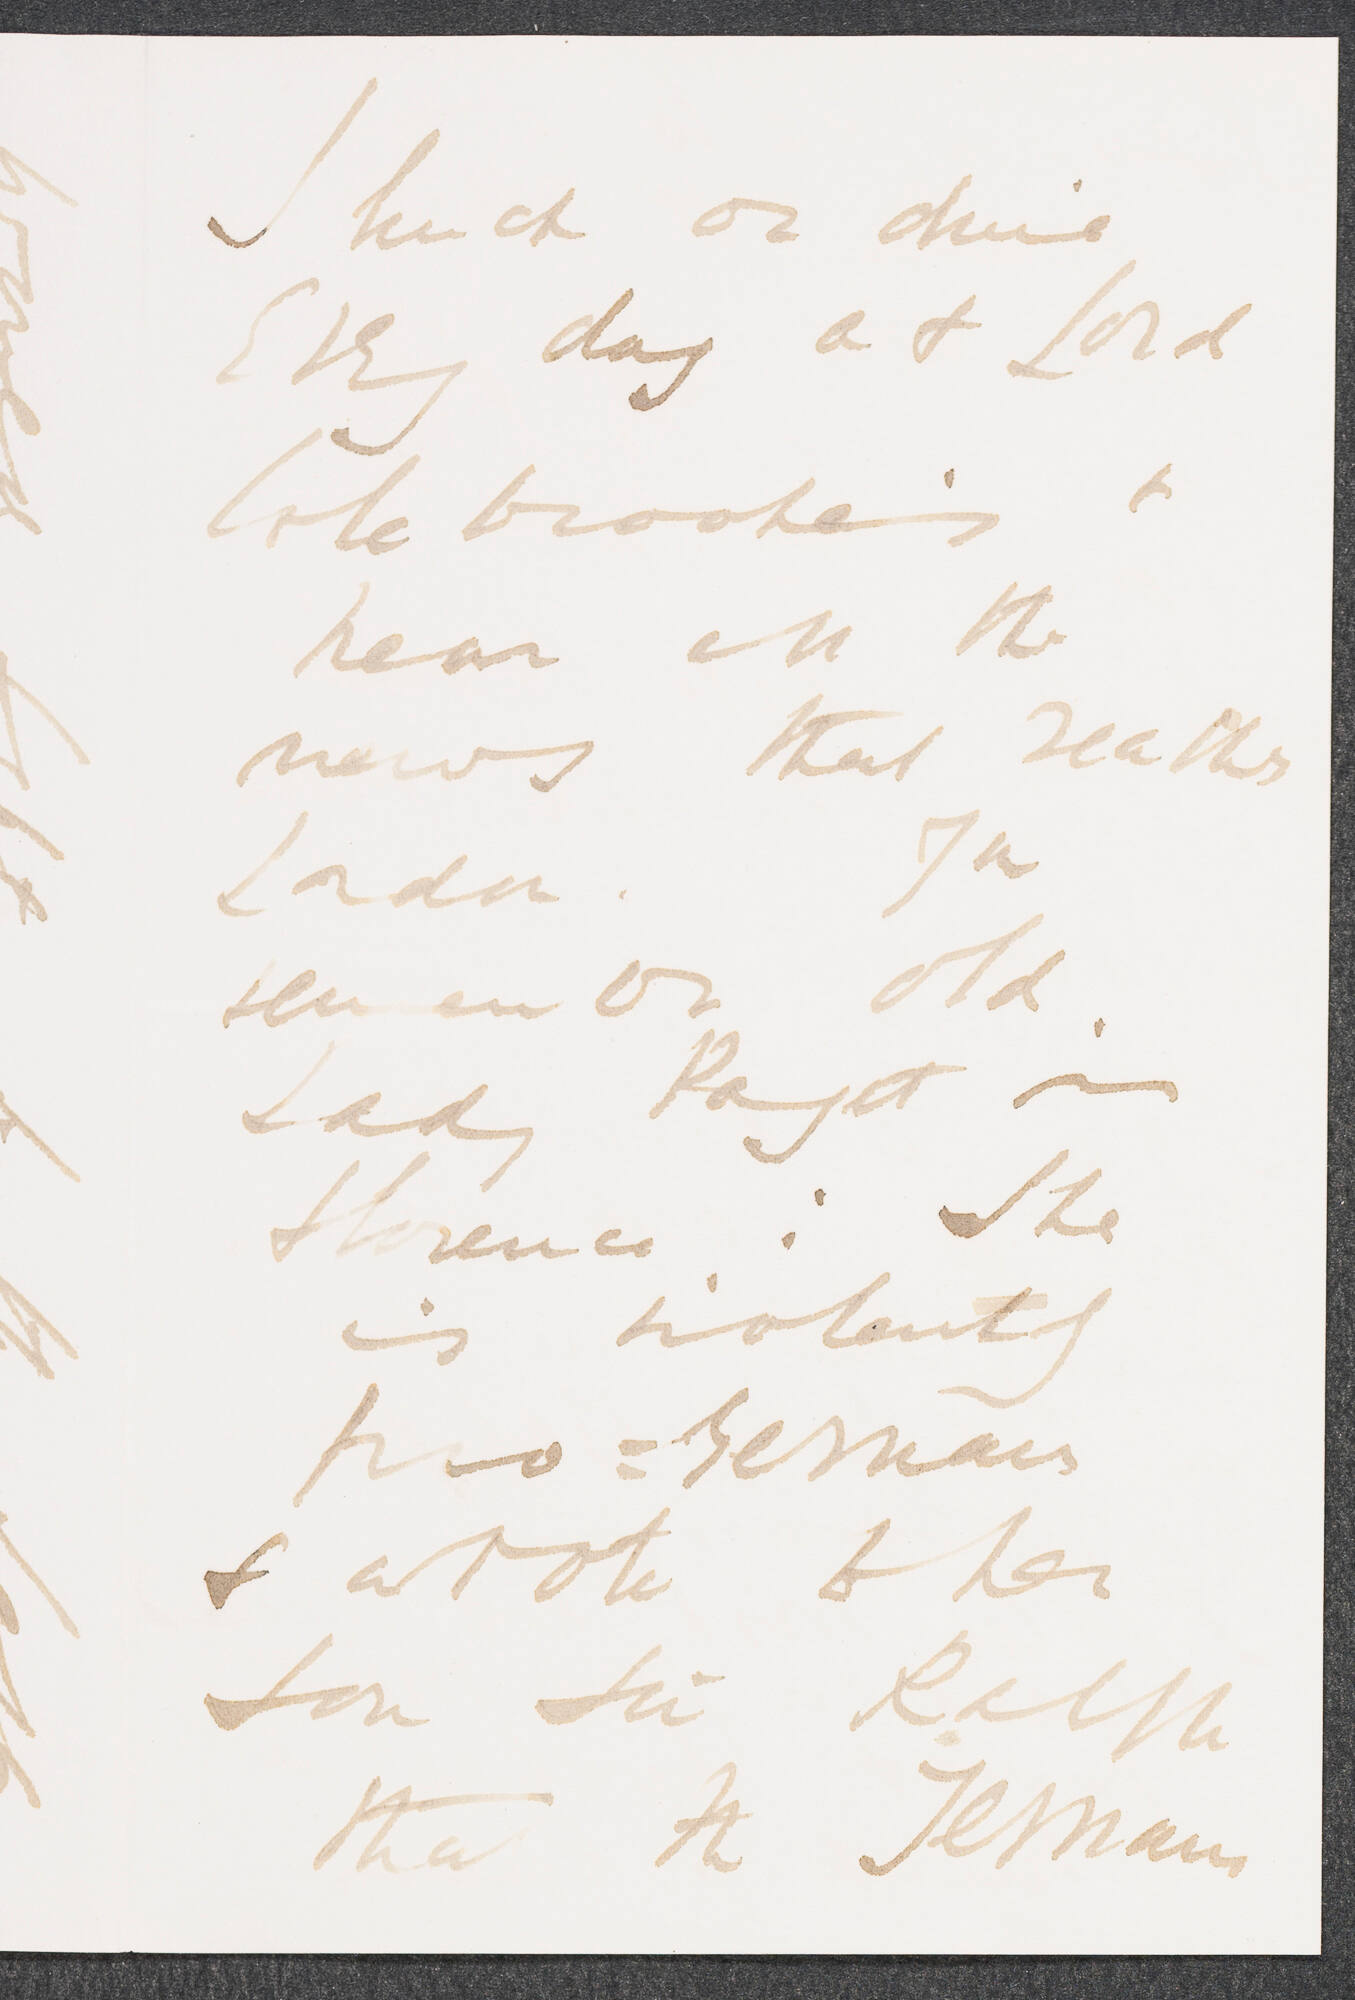 I lunch or dine
Every day at Lord
Colebrooke's &
hear all the
news that reaches
London. You
remember old
Lady Paget in
Florence: She
is violently
pro=German
& wrote to her
son Sir Ralph
that the Germans